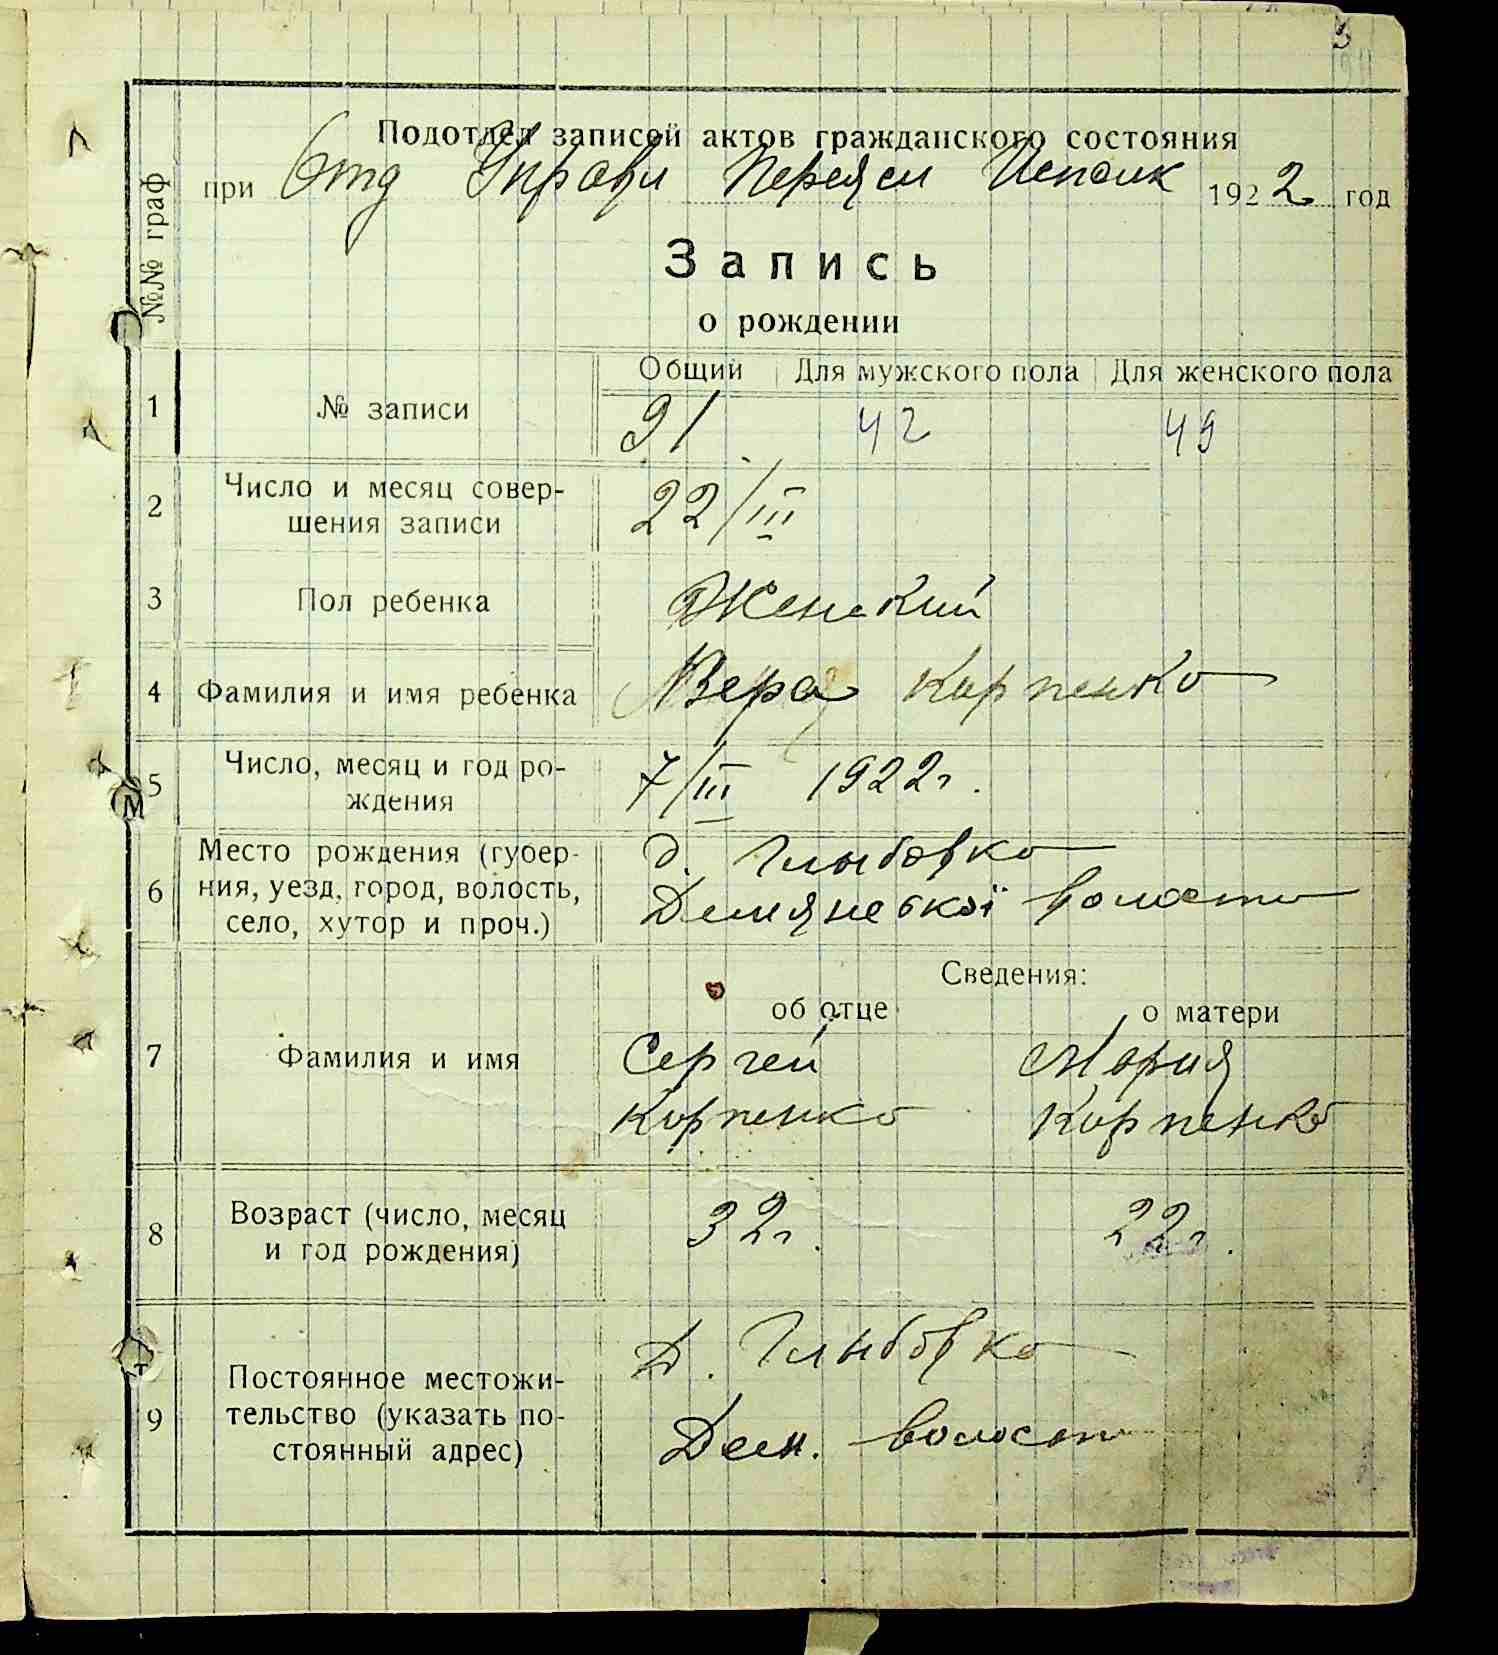 3
Подотдел записей актов гражданского состояния
при Отд Управл Переясл Исполк 1922 год
№№ граф
Запись
о рождении
Общий Для мужского пола Для женского пола
1 № записи 91 42 49
2 Число и месяц совер-
шения записи 22/III
3 Пол ребенка Женский
4 Фамилия и имя ребенка Вера Карпенко
5 Число, месяц и год ро-
ждения 7/III 1922г.
6 Место рождения (губер-
ния, уезд, город, волость,
село, хутор и проч.)
д. Глыбовка
Демянської волости
Сведения:
об отце о матери
7 Фамилия и имя Сергей Мария
Карпенко Карпенко
8 Возраст (число, месяц
и год рождения) 32г. 22г.
9 Постоянное местожи-
тельство (указать по-
стоянный адрес)
Д. Глыбовка
Дем. волости